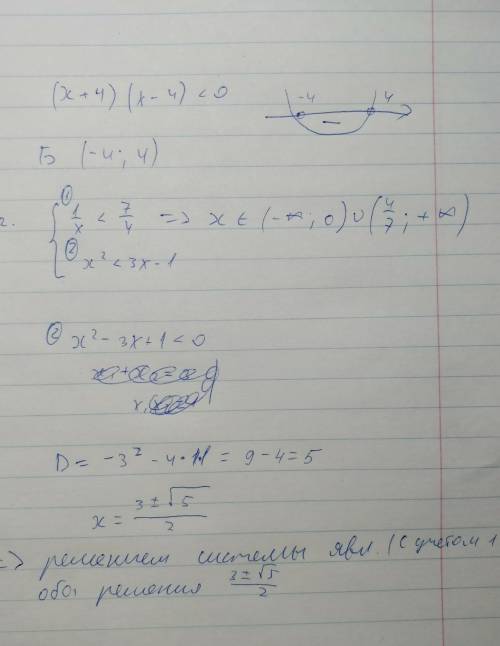 (x+4)(x-4) < 0
-4 4
−
Б (-4; 4)
2. { ① 1/x < 7/4 => x ∈ (-∞; 0) ∪ (4/7; +∞)
② x² < 3x - 1
② x² - 3x + 1 < 0
D = -3² - 4·1·1 = 9 - 4 = 5
x = (3 ± √5)/2
=> решением системы явл. (с учетом 1
оба решения (3 ± √5)/2